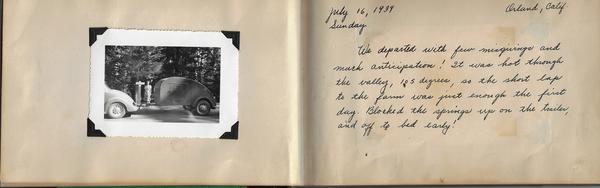 July 16, 1939 Orland, Calif.
Sunday
We departed with few misgivings and
much anticipation! It was hot through
the valley, 105 degrees, so the short lap
to the farm was just enough the first
day. Blocked the springs up on the trailer,
and off to bed early!